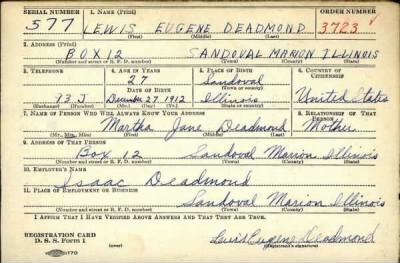 SERIAL NUMBER 1. NAME (Print) ORDER NUMBER
577 LEWIS EUGENE DEADMOND 3723
(First) (Middle) (Last)
2. ADDRESS (Print)
BOX 12 SANDOVAL MARION ILLINOIS
(Number and street or R. F. D. number) (Town) (County) (State)
3. TELEPHONE 4. AGE IN YEARS 5. PLACE OF BIRTH 6. COUNTRY OF CITIZENSHIP
27 Sandoval
DATE OF BIRTH (Town or county)
93 J December 27 1912 Illinois United States
(Exchange) (Number) (Mo.) (Day) (Yr.) (State or country)
7. NAME OF PERSON WHO WILL ALWAYS KNOW YOUR ADDRESS 8. RELATIONSHIP OF THAT PERSON
Martha Jane Deadmond Mother
(Mr., Mrs., Miss) (First) (Middle) (Last)
9. ADDRESS OF THAT PERSON
Box 12 Sandoval Marion Illinois
(Number and street or R. F. D. number) (Town) (County) (State)
10. EMPLOYER'S NAME
Isaac Deadmond
11. PLACE OF EMPLOYMENT OR BUSINESS
Sandoval Marion Illinois
(Number and street or R. F. D. number) (Town) (County) (State)
I AFFIRM THAT I HAVE VERIFIED ABOVE ANSWERS AND THAT THEY ARE TRUE.
REGISTRATION CARD
D. S. S. Form 1 (over) Lewis Eugene Deadmond
(Registrant's signature)